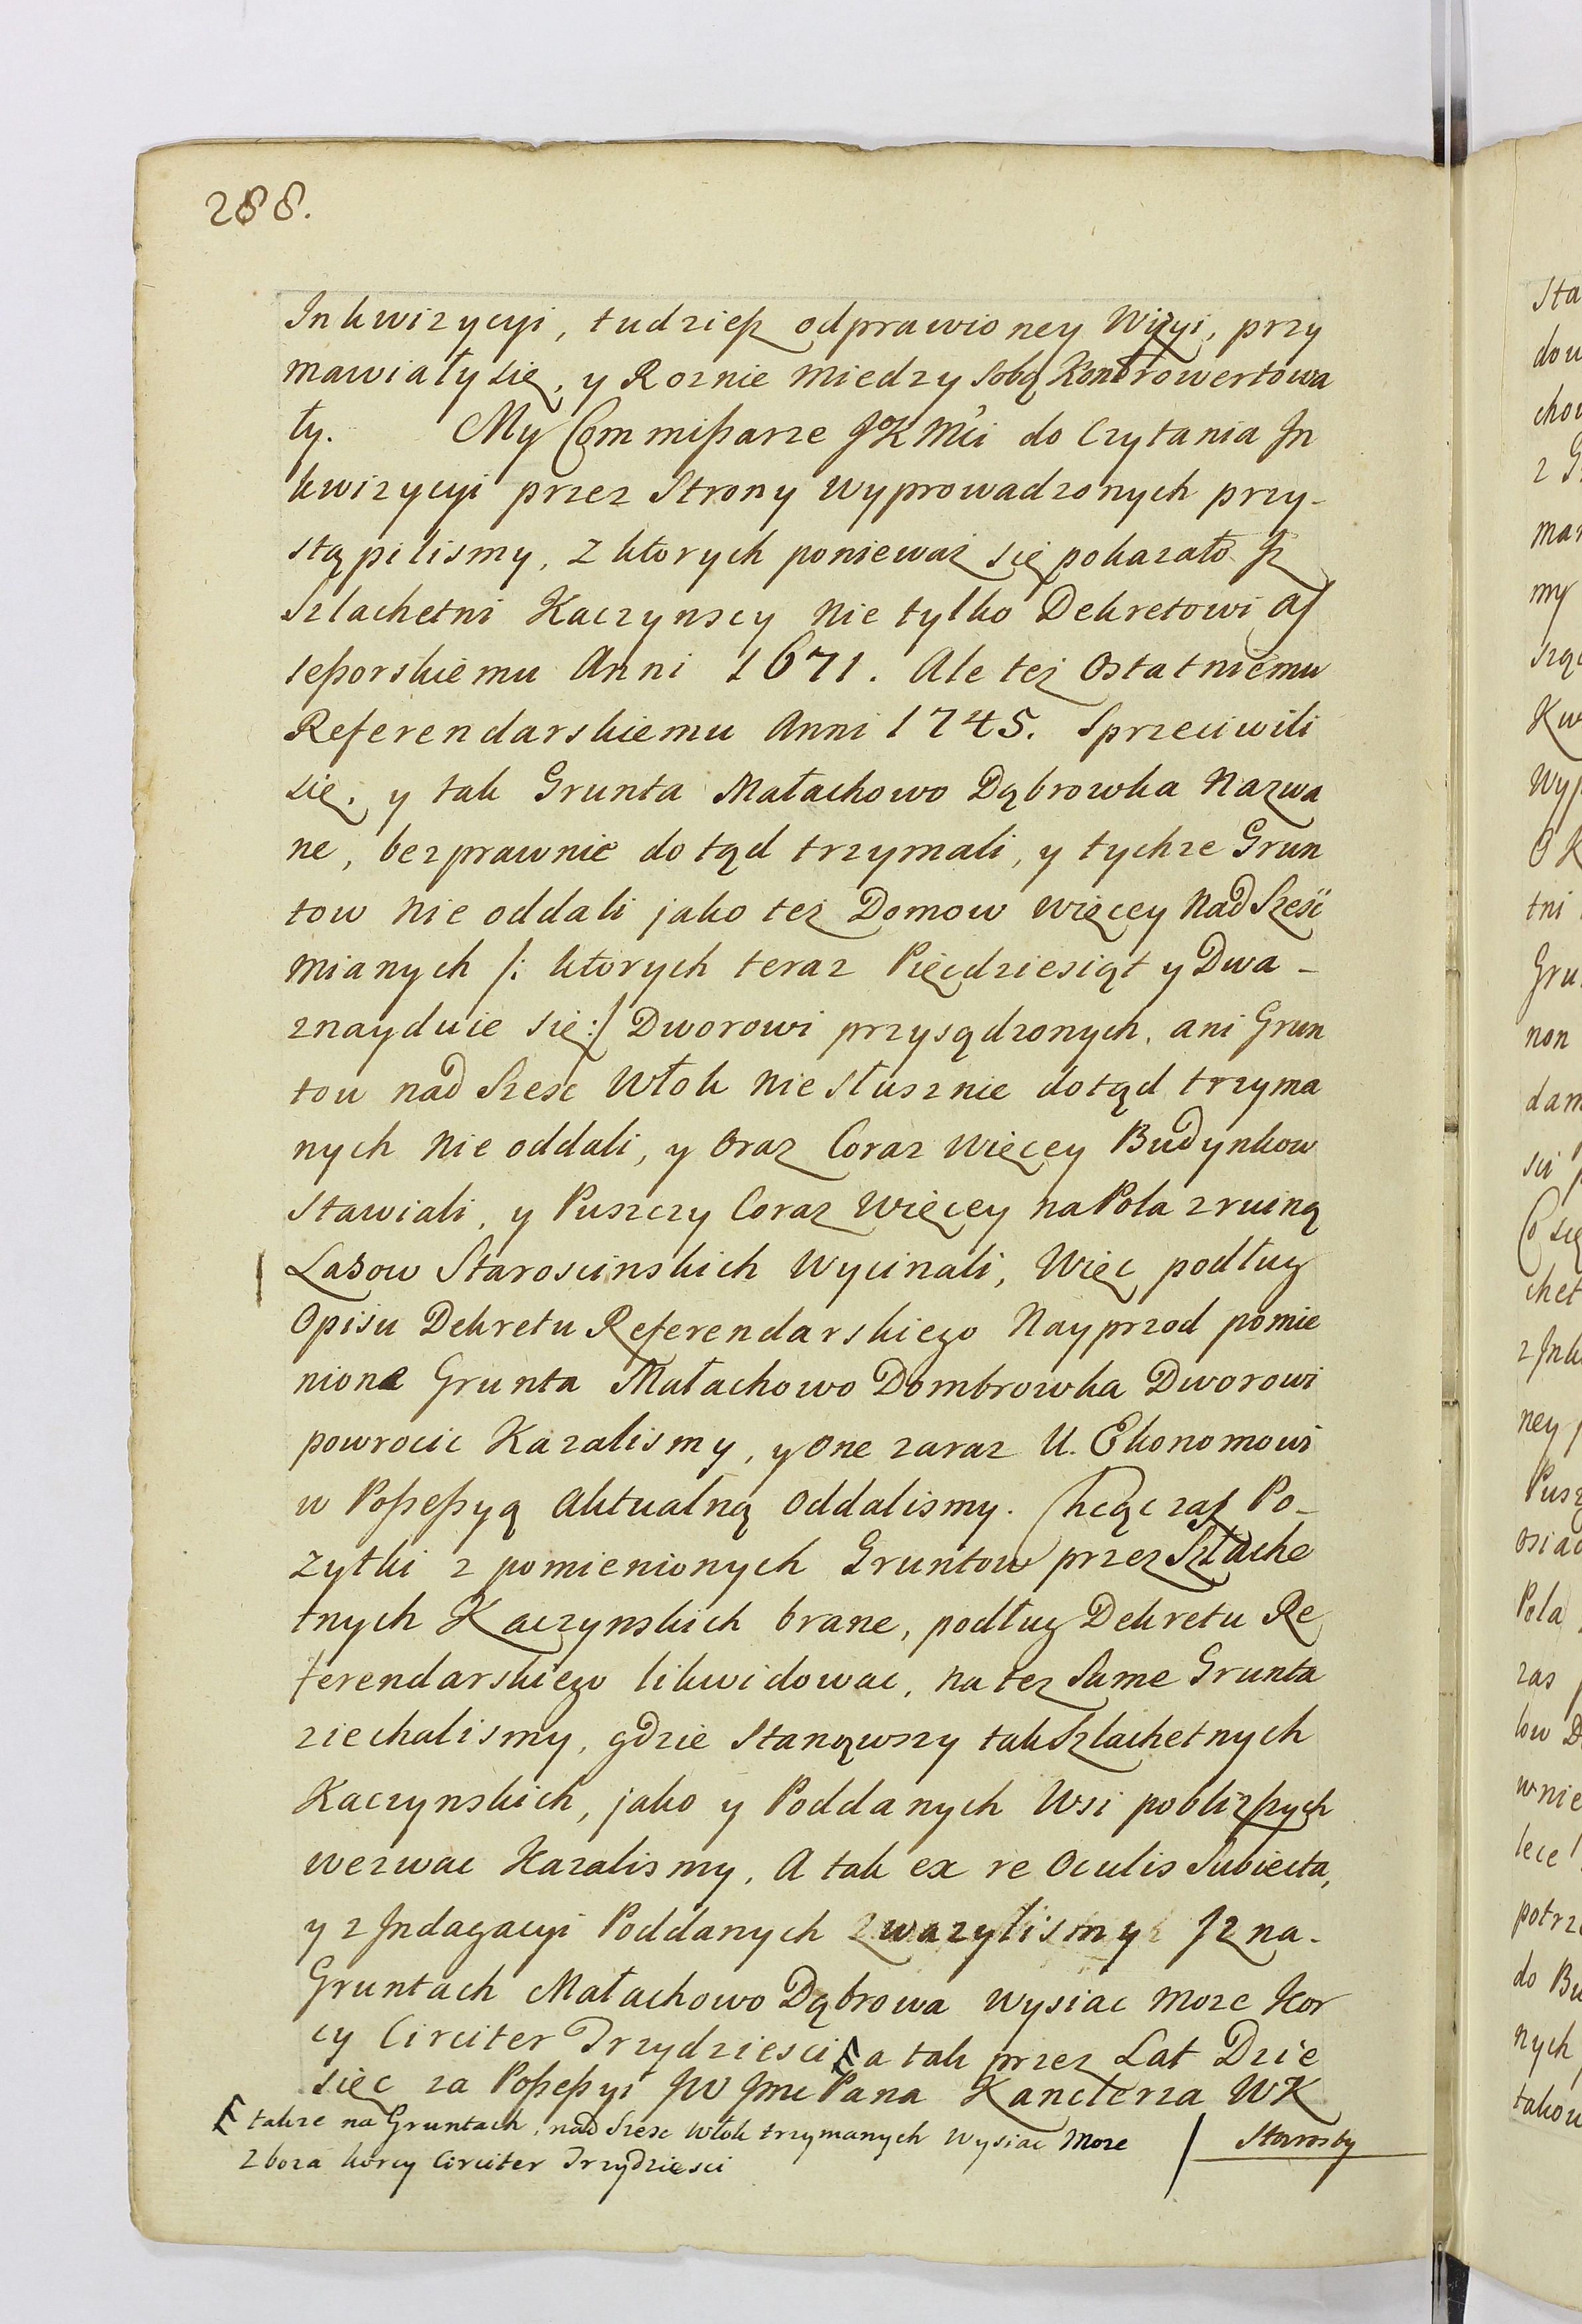 288.
Inkwizycyi, tudzież odprawioney Wizyi, przy
mawiały się, y Roznie miedzy sobą Kontrowertowa
ły. My Commißarze JKMci do Czytania In
kwizycyi przez Strony wyprowadzonych przy-
stąpilismy, z ktorych ponieważ się pokazało Iz
Szlachetni Kaczynscy nie tylko Dekretowi As
seßorskiemu Anni 1671. Ale też Ostatniemu
Referendarskiemu Anni 1745. Sprzeciwili
się, y tak Grunta Małachowo Dąbrowka Nazwa
ne, bezprawnie dotąd trzymali, y tychze Grun
tow nie oddali jako też Domow więcey nad Sześć
mianych /: ktorych teraz Pięcdziesiąt y Dwa -
znayduie się :/ Dworowi przysądzonych, ani Grun
tow nad Szesc Włok nie słusznie dotąd trzyma
nych nie oddali, y Oraz Coraz więcey Budynkow
stawiali, y Puszczy Coraz więcey na Pola z ruiną
Lasow Staroscinskich wycinali, Więc podług
Opisu Dekretu Referendarskiego Nayprzod pomie
nione Grunta Małachowo Dombrowka Dworowi
powrocic Kazalismy, y one zaraz U. Ekonomowi
w Poßeßyą Aktualną Oddalismy. Chcąc zas Po-
zytki z pomienionych Gruntow przez Szlache
tnych Kaczynskich brane, podług Dekretu Re
ferendarskiego likwidowac, na też same Grunta
ziechalismy, gdzie stanąwszy tak Szlachetnych
Kaczynskich, jako y Poddanych Wsi pobliżßych
wezwac Kazalismy, A tak ex re Oculis Subiecta,
y z Indagacyi Poddanych zwazylismy Iz na -
Gruntach Małachowo Dąbrowa wysiac moze Kor
cy Circiter Trzydziesci a tak przez Lat Dzie
sięc za Poßeßyi JW Jmc Pana Kanclerza WK
takze na Gruntach, nad Szesc Włok trzymanych wysiac Moze
Zboza korcy Circiter Trzydziesci
Starosty